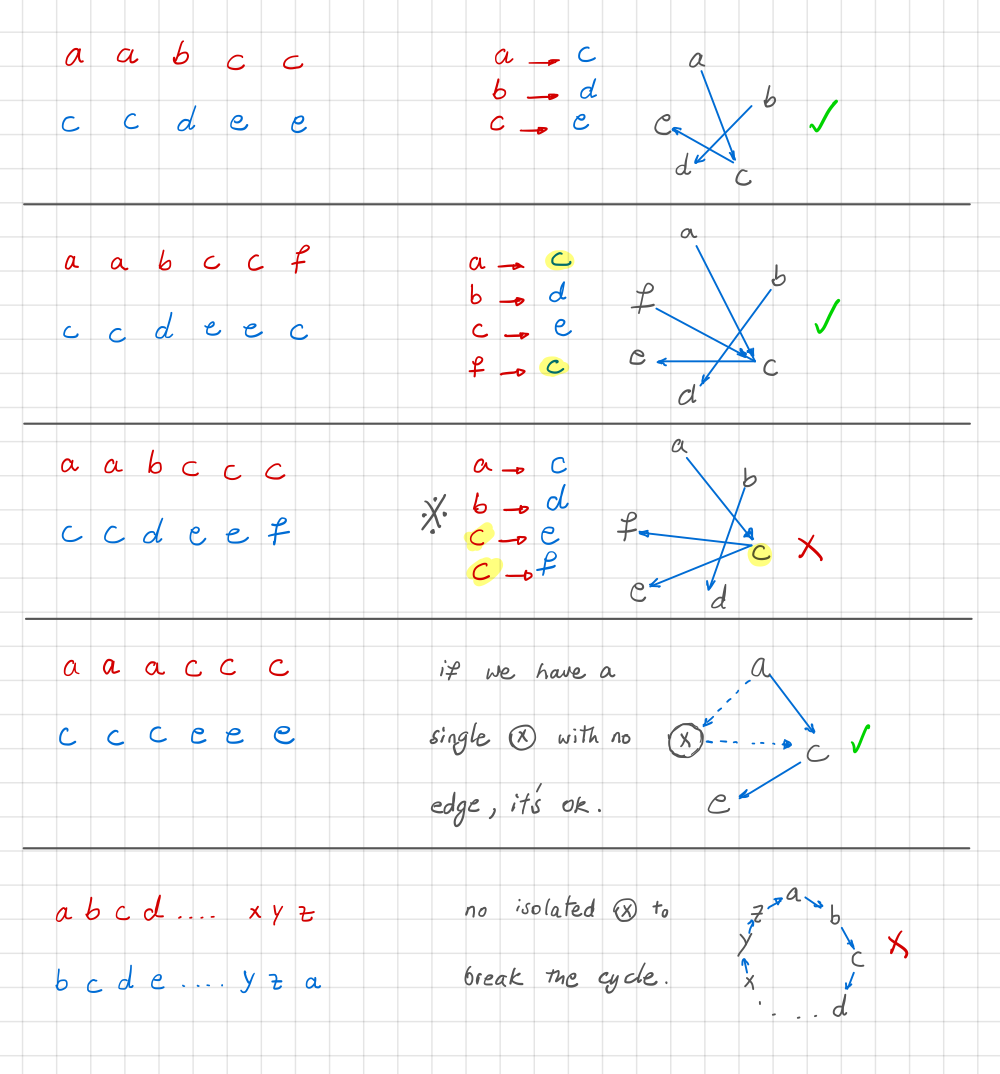 a a b c c
c c d e e
a → c
b → d
c → e
a
b
e
d
c
✓
a a b c c f
c c d e e c
a → c
b → d
c → e
f → c
a
b
f
e
c
d
✓
a a b c c c
c c d e e f
※
a → c
b → d
c → e
c → f
a
b
f
c
e
d
✗
a a a c c c
c c c e e e
if we have a
single ⓧ with no
edge, it's ok.
a
ⓧ
c
e
✓
a b c d .... x y z
b c d e .... y z a
no isolated ⓧ to
break the cycle.
a
z
b
y
c
x
d
. . . .
✗